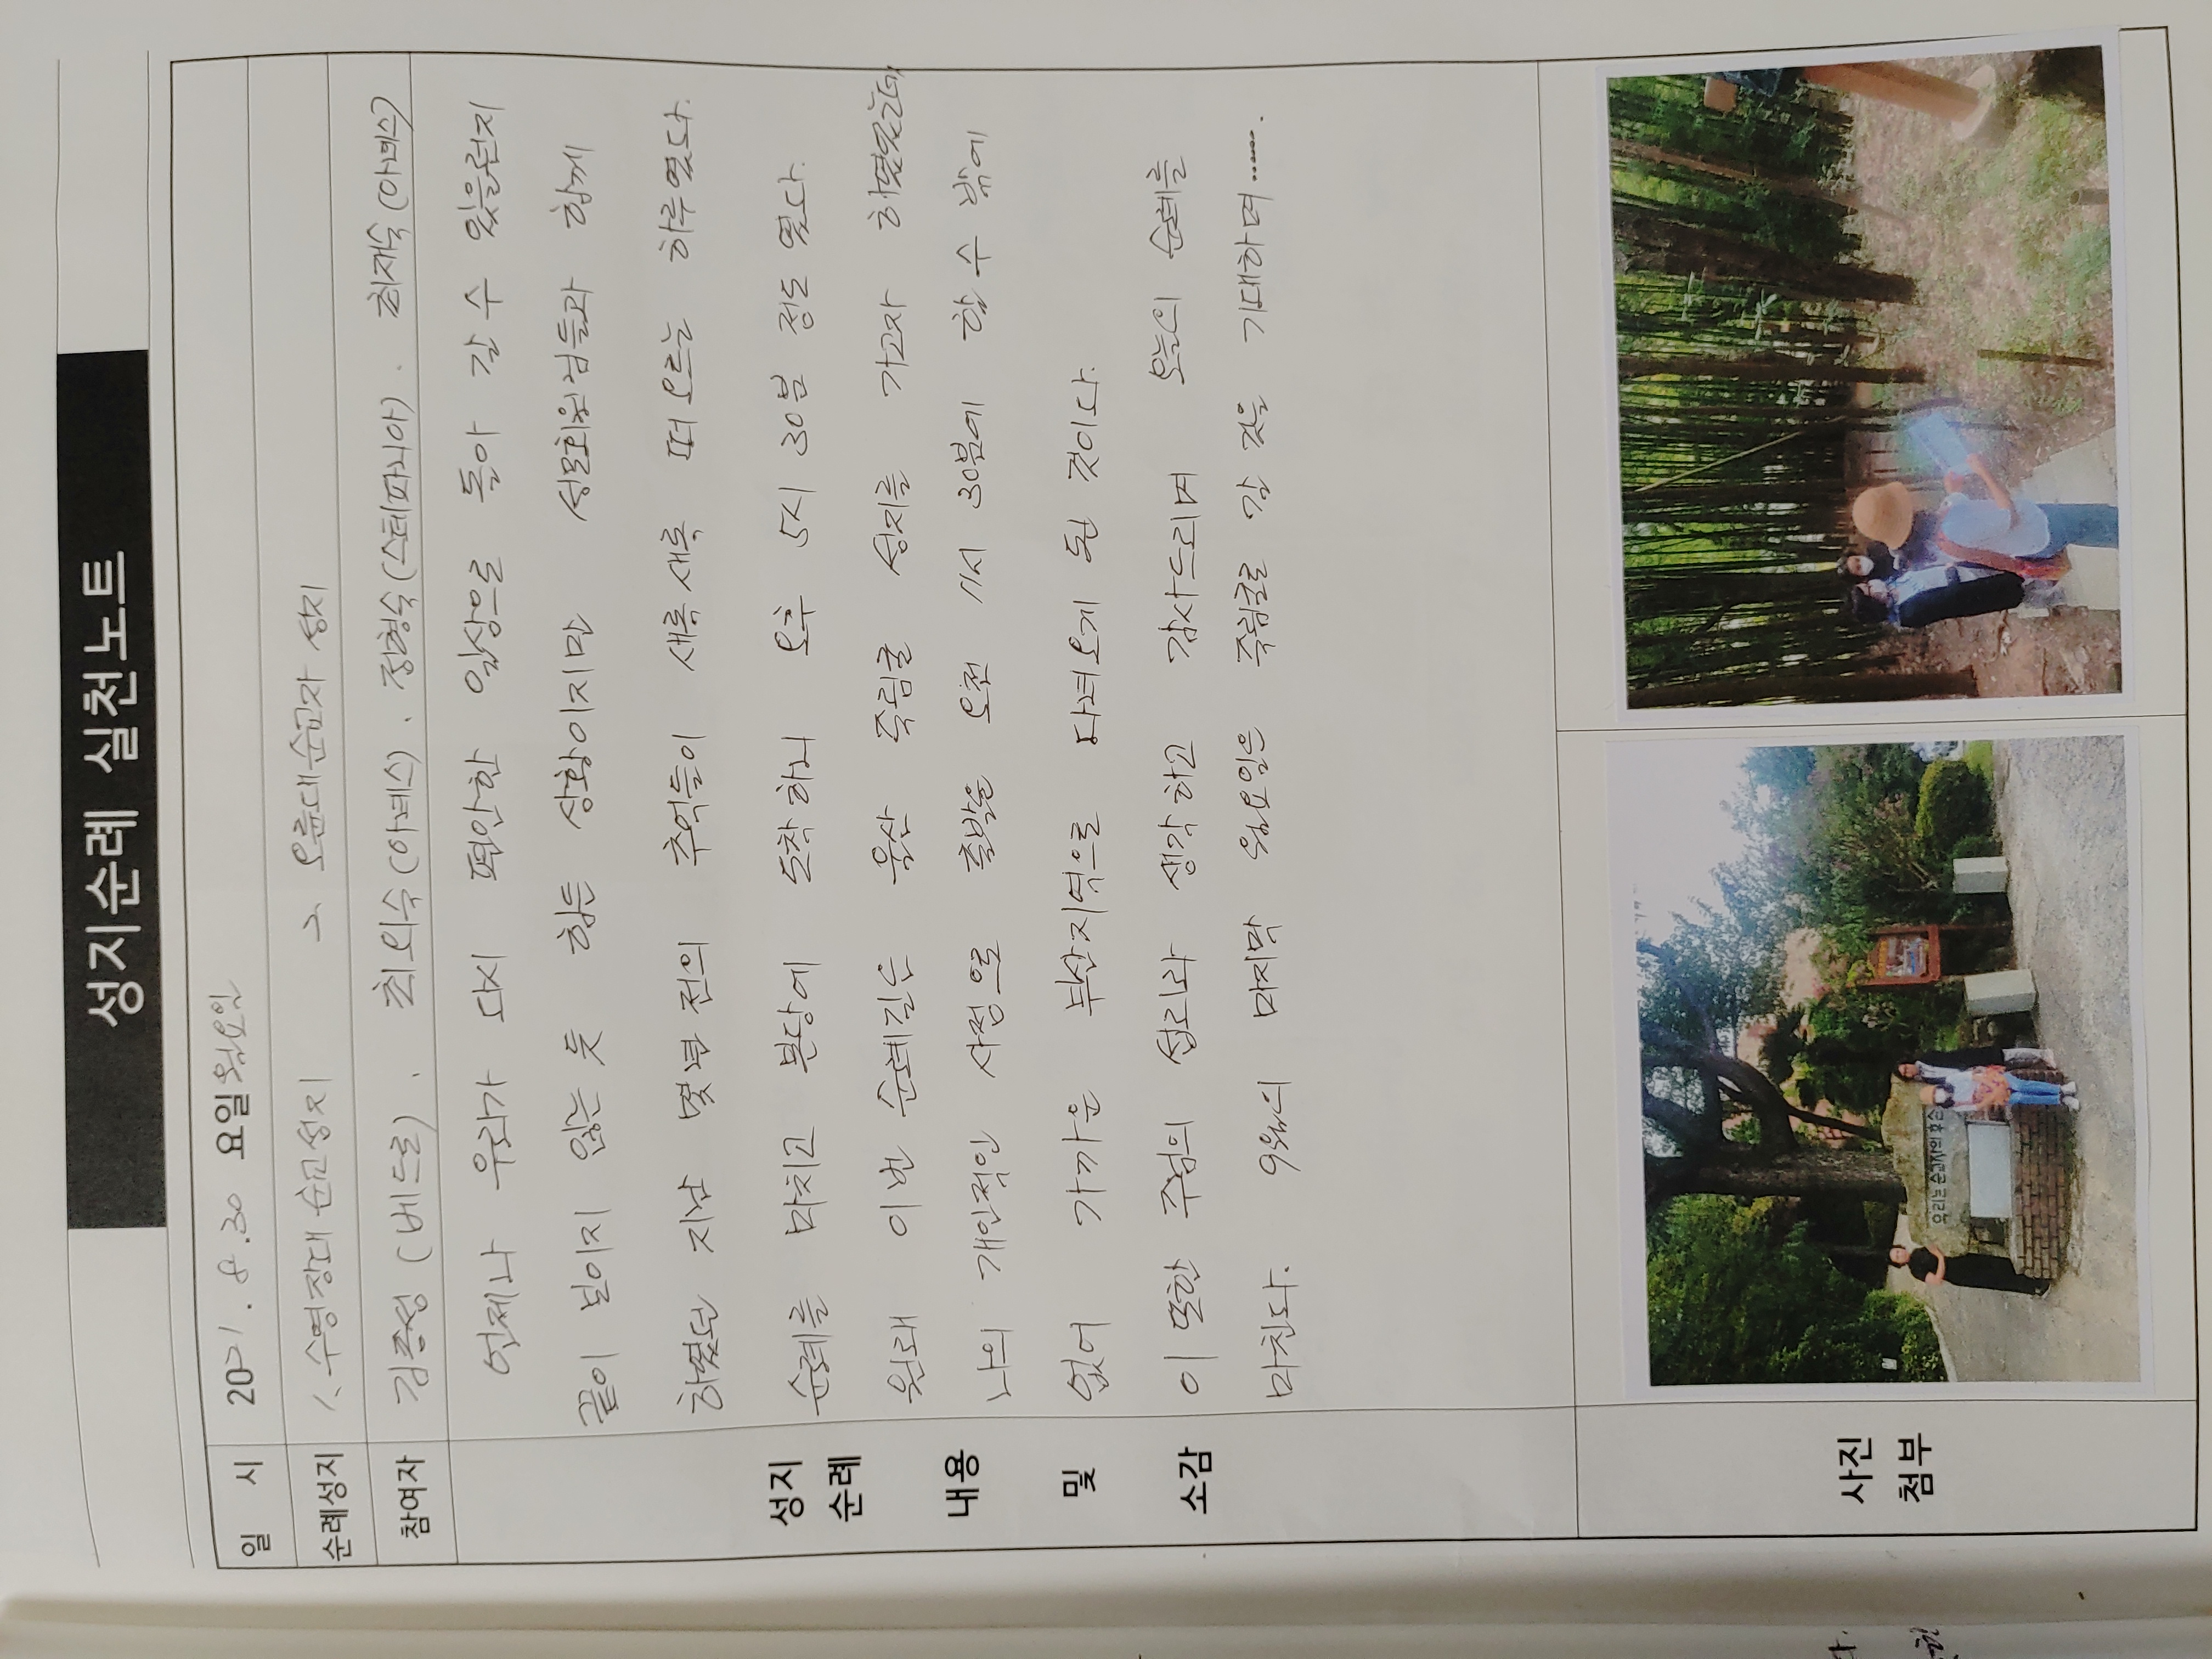 성지순례 실천노트
일 시 2021. 8. 30 요일 월요일
순례성지 1. 수영장대 순교성지 2. 오륜대순교자 성지
참여자 김종성 (베드로). 최외숙 (아네스). 정형숙 (스테파니아). 최재숙 (아녜스)
언제나 우리가 다시 편안한 일상으로 돌아 갈 수 있을런지
끝이 보이지 않는 듯 힘든 상황이지만 성모회원님들과 함께
하였던 지난 몇년 전의 추억들이 새록새록 떠 오르는 하루였다.
순례를 마치고 본당에 도착하니 오후 5시 30분 정도 였다.
원래 이번 순례길은 울산 죽림굴 성지를 가고자 하였었는데
나의 개인적인 사정으로 출발을 오전 11시 30분에 할 수 밖에
없어 가까운 부산지역으로 다녀오게 된 것이다.
이 또한 주님의 섭리라 생각하고 감사드리며 오늘의 순례를
마친다. 9월의 마지막 월요일은 죽림굴로 갈 것을 기대하며.......
성지
순례
내용
및
소감
사진
첨부
우리는 순교자의 후손
다.